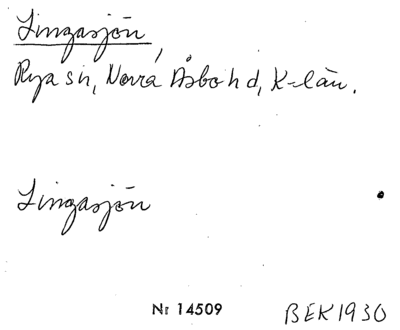 Lingasjön,
Rya sn, Norra Åsbo hd, K-län.
Lingasjön
Nr 14509
BEK1930